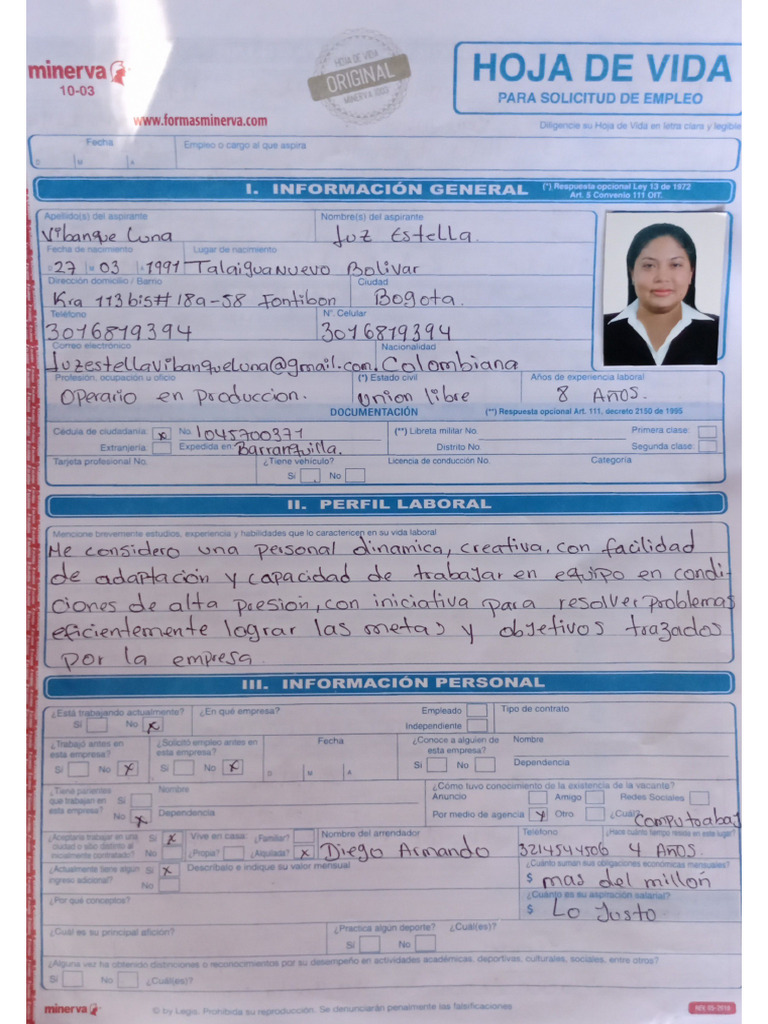 minerva
10-03
HOJA DE VIDA
ORIGINAL
MINERVA 1003
HOJA DE VIDA
PARA SOLICITUD DE EMPLEO
www.formasminerva.com
Diligencie su Hoja de Vida en letra clara y legible
Fecha Empleo o cargo al que aspira
D M A
I. INFORMACIÓN GENERAL (*) Respuesta opcional Ley 13 de 1972
Art. 5 Convenio 111 OIT.
Apellido(s) del aspirante Nombre(s) del aspirante
Vibanque Luna Luz Estella.
Fecha de nacimiento Lugar de nacimiento
D 27 M 03 A 1991 Talaigua Nuevo Bolivar
Dirección domicilio / Barrio Ciudad
Kra 113 bis # 18a-58 Fontibon Bogota.
Teléfono N°. Celular
3016819394 3016819394
Correo electrónico Nacionalidad
luzestellavibanqueluna@gmail.com. Colombiana
Profesión, ocupación u oficio (*) Estado civil Años de experiencia laboral
Operario en produccion. Union libre 8 Años.
DOCUMENTACIÓN (**) Respuesta opcional Art. 111, decreto 2150 de 1995
Cédula de ciudadanía: x No. 1045700371 (**) Libreta militar No. Primera clase:
Extranjería: Expedida en: Barranquilla. Distrito No. Segunda clase:
Tarjeta profesional No. ¿Tiene vehículo? Licencia de conducción No. Categoría
Sí No
II. PERFIL LABORAL
Mencione brevemente estudios, experiencia y habilidades que lo caractericen en su vida laboral
Me considero una personal dinamica, creativa, con facilidad
de adaptación y capacidad de trabajar en equipo en condi-
ciones de alta presion, con iniciativa para resolver problemas
eficientemente lograr las metas y objetivos trazados
por la empresa.
III. INFORMACIÓN PERSONAL
¿Está trabajando actualmente? ¿En qué empresa? Empleado Tipo de contrato
Sí No x Independiente
¿Trabajó antes en esta empresa? ¿Solicitó empleo antes en esta empresa? Fecha ¿Conoce a alguien de esta empresa? Nombre
Sí No x Sí No x D M A Sí No Dependencia
¿Tiene parientes que trabajan en esta empresa? Sí No x Nombre ¿Cómo tuvo conocimiento de la existencia de la vacante?
Anuncio Amigo Redes Sociales
Dependencia Por medio de agencia x Otro ¿Cuál? Computrabaj
¿Aceptaría trabajar en una ciudad o sitio distinto al inicialmente contratado? Sí x No Vive en casa: ¿Familiar? Nombre del arrendador Teléfono ¿Hace cuánto tiempo reside en este lugar?
¿Propia? ¿Alquilada? x Diego Armando 3214544506 4 Años.
¿Actualmente tiene algún ingreso adicional? Sí x No Descríbalo e indique su valor mensual ¿Cuánto suman sus obligaciones económicas mensuales?
$ mas del millón
¿Por qué conceptos? ¿Cuánto es su aspiración salarial?
$ Lo Justo
¿Cuál es su principal afición? ¿Practica algún deporte? ¿Cuál(es)?
Sí No
¿Alguna vez ha obtenido distinciones o reconocimientos por su desempeño en actividades académicas, deportivas, culturales, sociales, entre otros?
Sí No ¿Cuál(es)?
minerva © by Legis. Prohibida su reproducción. Se denunciarán penalmente las falsificaciones